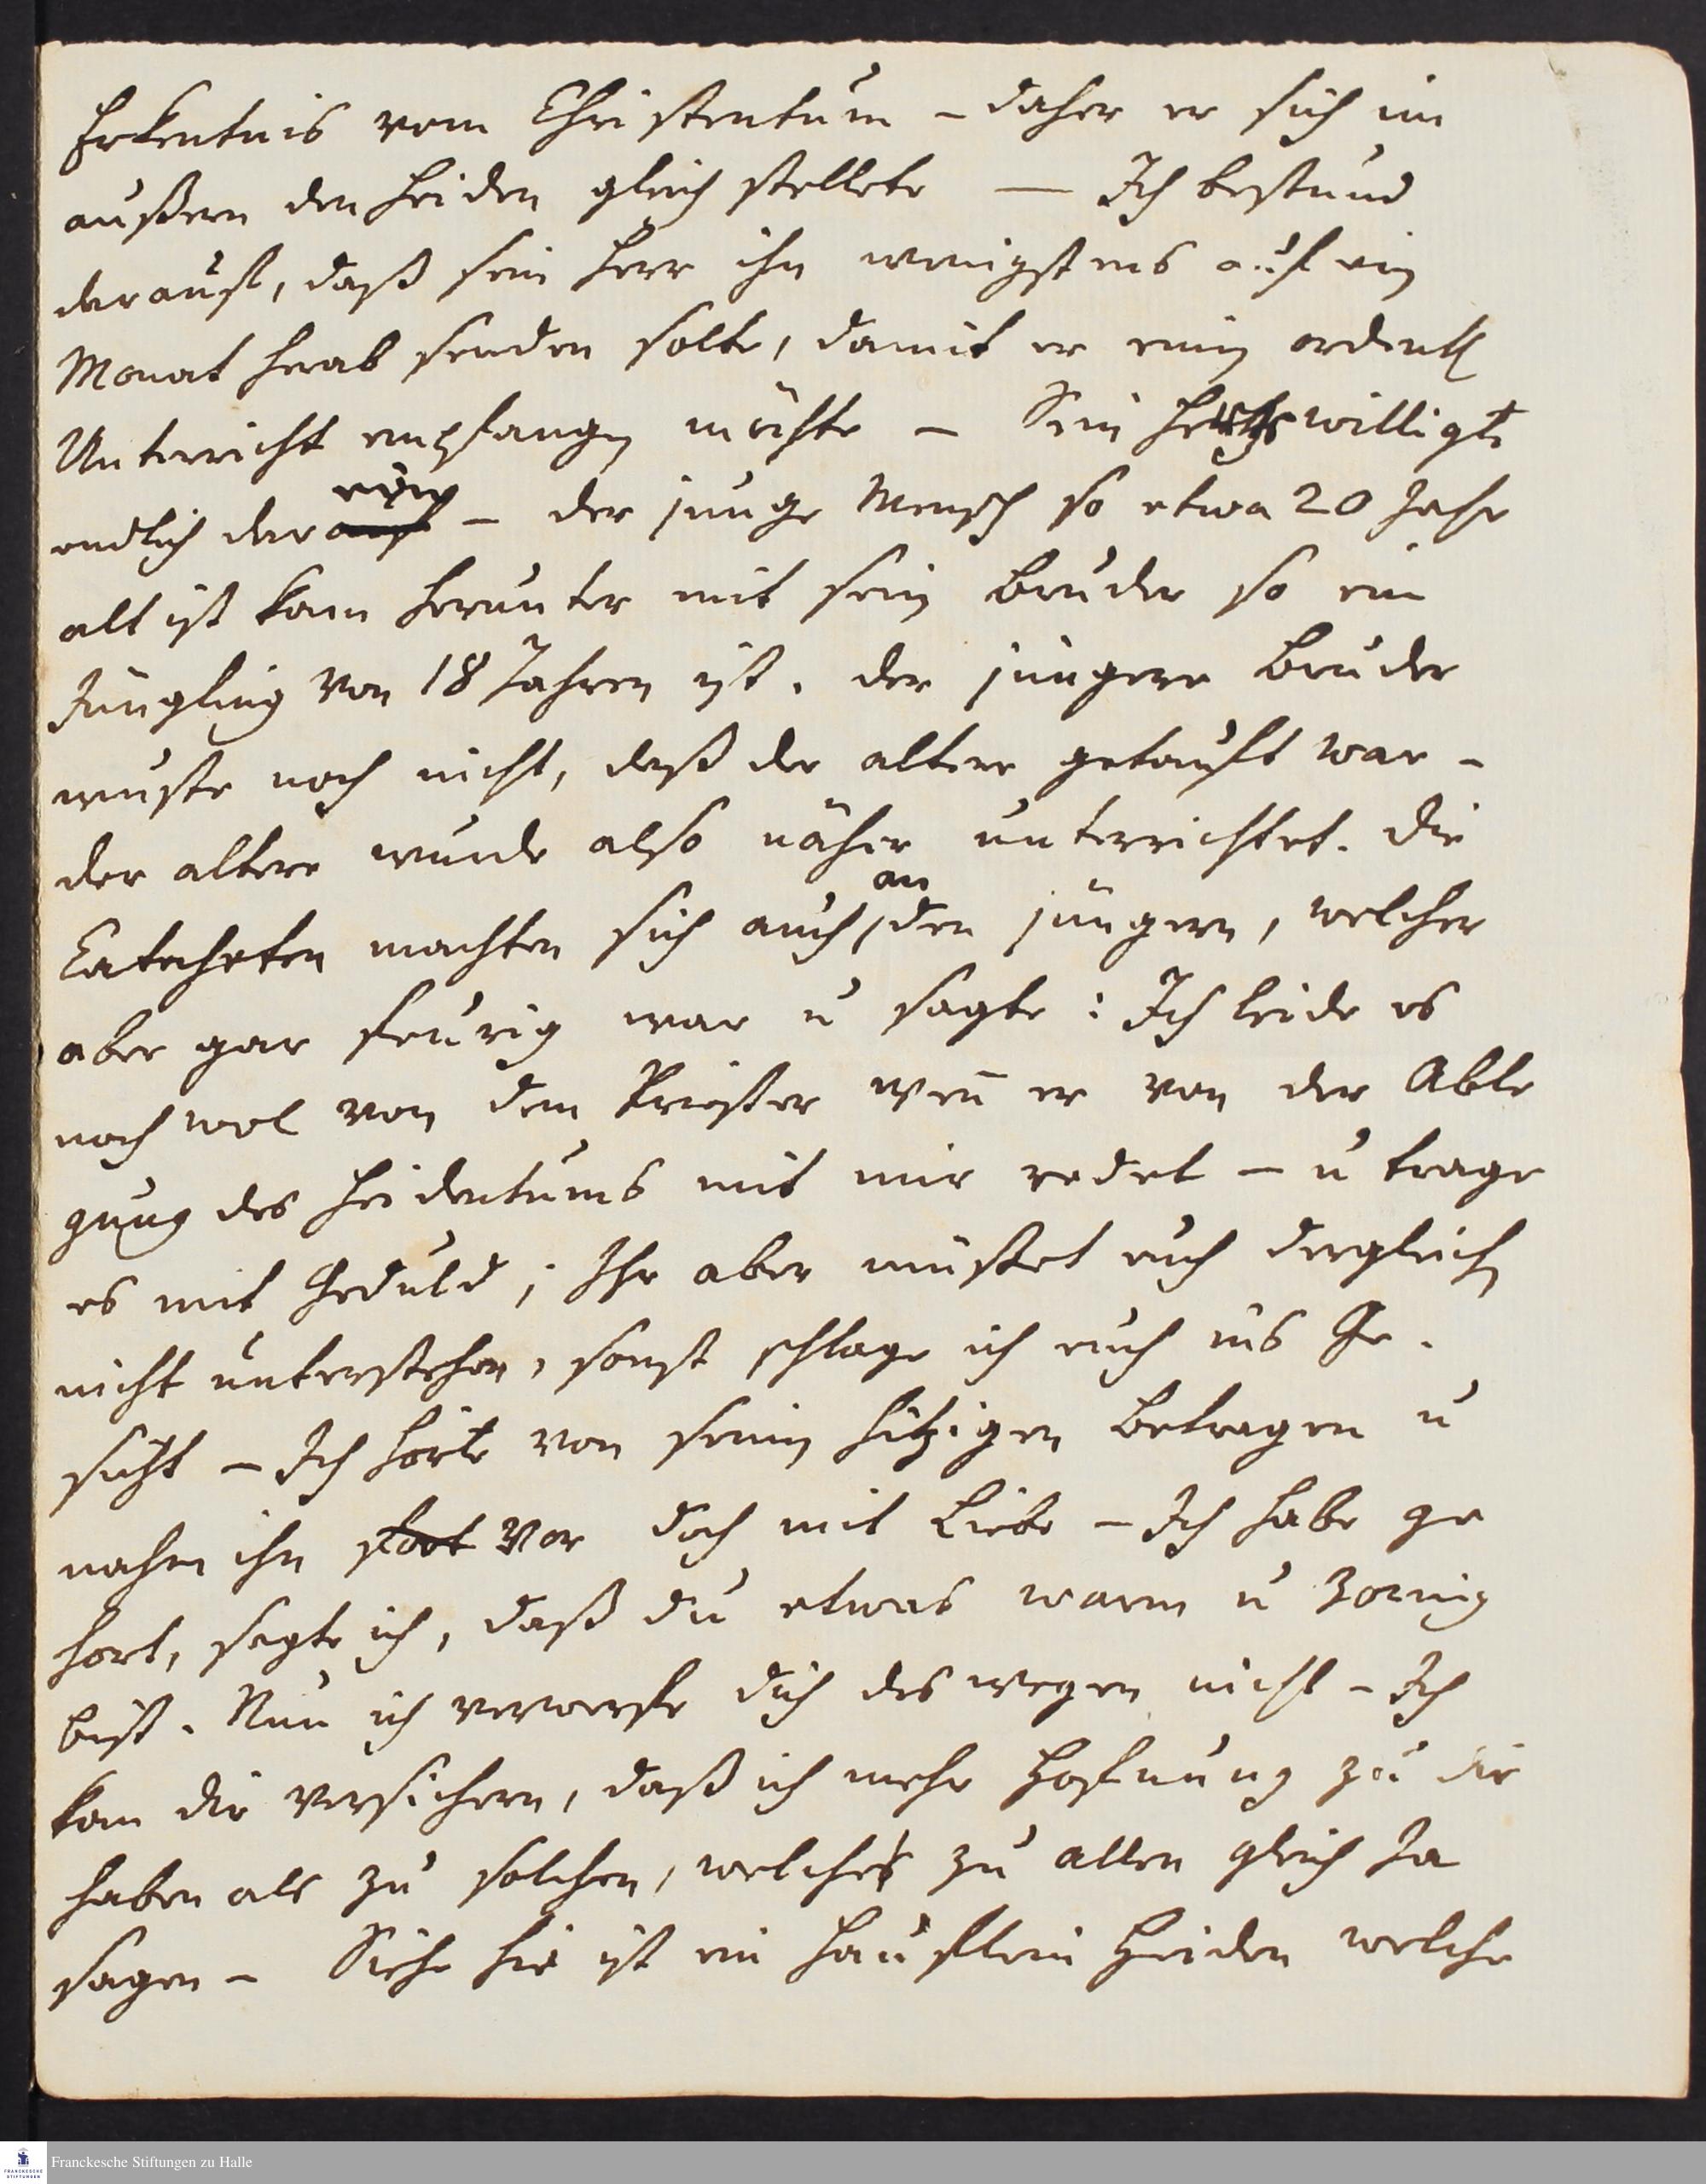 Erkentnis vom Christentum – daher er sich im
außern den Heiden gleich stellete — Ich bestund
darauf, daß sein Herr ihn wenigstens auf ein
Monat herab senden solte, damit er einen ordentl
Unterricht empfangen möchte – Sein Herr willigte
endlich darein – der junge Mensch so etwa 20 Jahr
alt ist kam herunter mit sein Bruder so ein
Jüngling von 18 Jahren ist. der jüngere Bruder
wuste noch nicht, daß der altere getauft war –
der altere wurde also näher unterrichtet. die
Catecheten machten sich auch an den jüngern, welcher
aber gar feurig war u sagte: Ich leide es
noch wol von dem Priester weñ er von der Able
gung des Heidentums mit mir redet – u trage
es mit Geduld; Ihr aber müstet euch dergleichen
nicht unterstehen, sonst schlage ich euch ins Ge-
sicht – Ich hörte von seinen hitzigen Betragen u
nahm ihn fort vor doch mit Liebe – Ich habe ge
hort, sagte ich, daß du etwas warm u zornig
bist. Nun ich verwerfe dich deswegen nicht – Ich
kan dir versichern, daß ich mehr Hofnung zu dir
haben als zu solchen, welche zu allen gleich Ja
sagen – Siehe hie ist ein Hauflein Heiden welche
Franckesche Stiftungen zu Halle